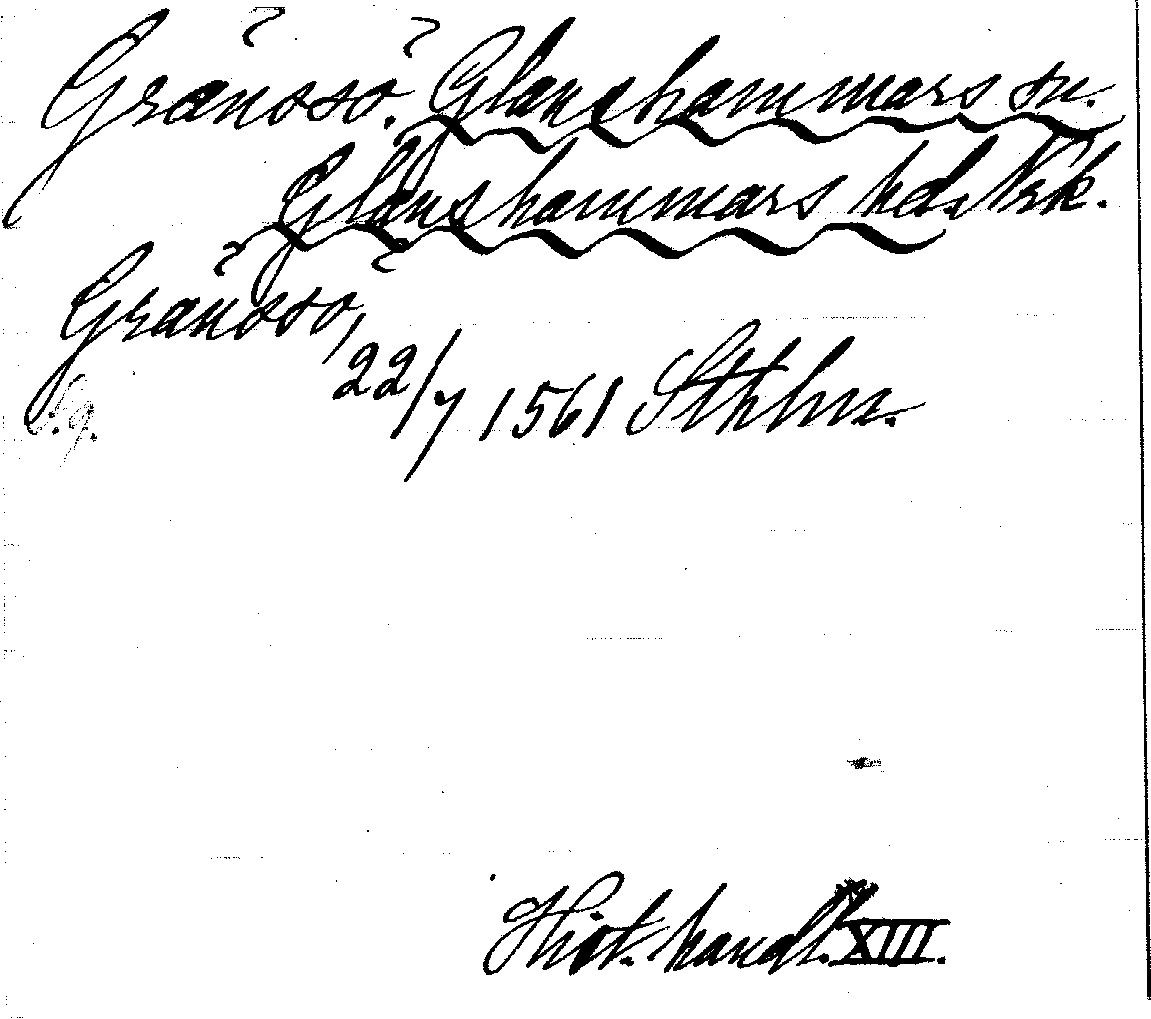 Gränssö. Glanshammars sn.
Glanshammars hd. Nrk.
Gränsö,
22/7 1561 Sthlm.
S.g.
Hist. handl. XIII.